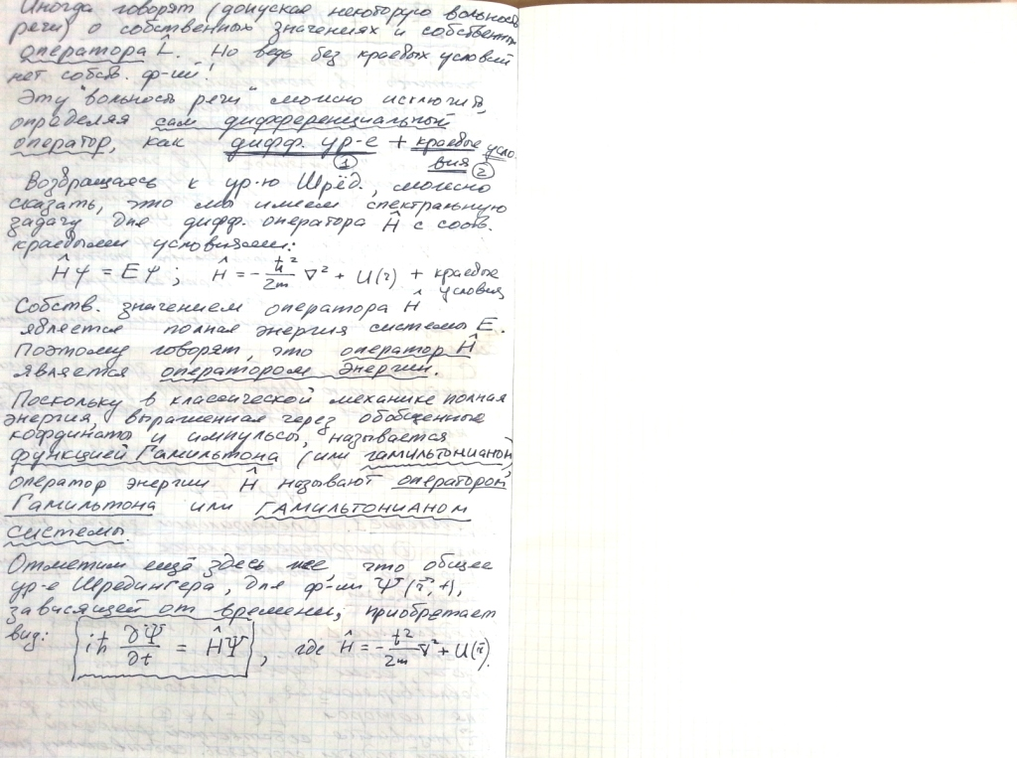 Иногда говорят (допуская некоторую вольность
речи) о собственных значениях и собственн
оператора L̂. Но ведь без краевых условий
нет собств. ф-ий!
Эту "вольность речи" можно исключить,
определяя сам дифференциальный
оператор, как дифф. ур-е + краевые усло-
вия
① ②
Возвращаясь к ур-ю Шрёд., можно
сказать, что мы имеем спектральную
задачу для дифф. оператора Ĥ с соотв.
краевыми условиями:
Ĥψ = Eψ ; Ĥ = -ħ²/2m ∇² + U(r) + краевые
условия
Собств. значением оператора Ĥ
является полная энергия системы E.
Поэтому говорят, что оператор Ĥ
является оператором энергии.
Поскольку в классической механике полная
энергия, выраженная через обобщенные
координаты и импульсы, называется
функцией Гамильтона (или гамильтонианом)
оператор энергии Ĥ называют оператором
Гамильтона или ГАМИЛЬТОНИАНОМ
системы.
Отметим ещё здесь же что общее
ур-е Шредингера, для ф-ии Ψ(r⃗,t),
зависящей от времени, приобретает
вид: iħ ∂Ψ/∂t = ĤΨ , где Ĥ = -ħ²/2m ∇² + U(r⃗).